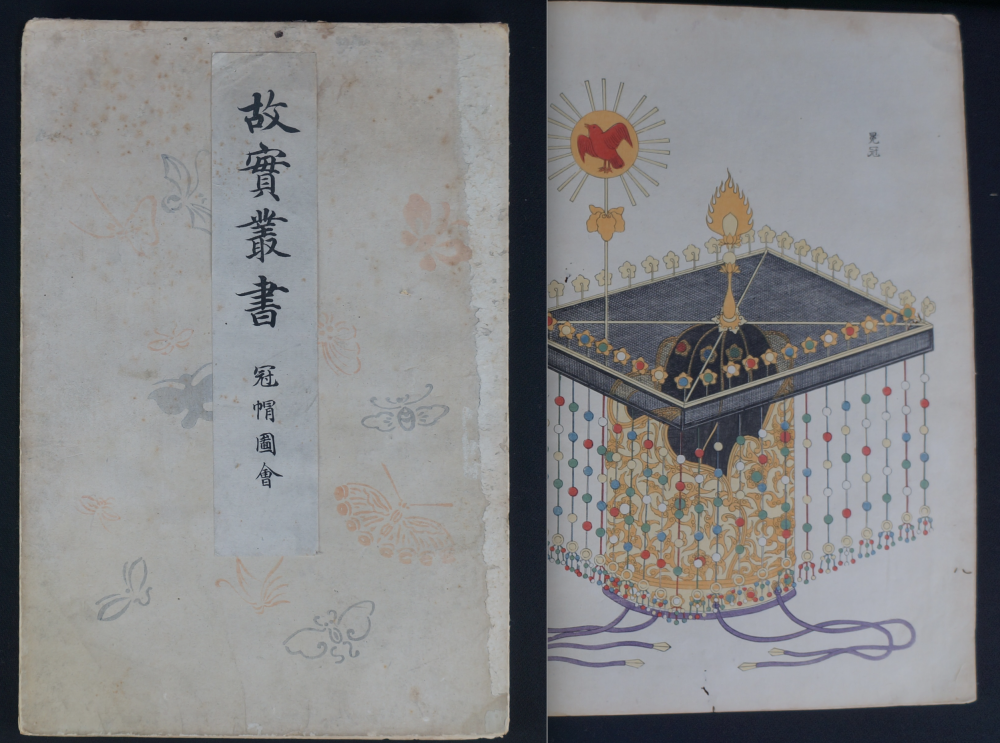 故實叢書
冠帽圖會
冕冠